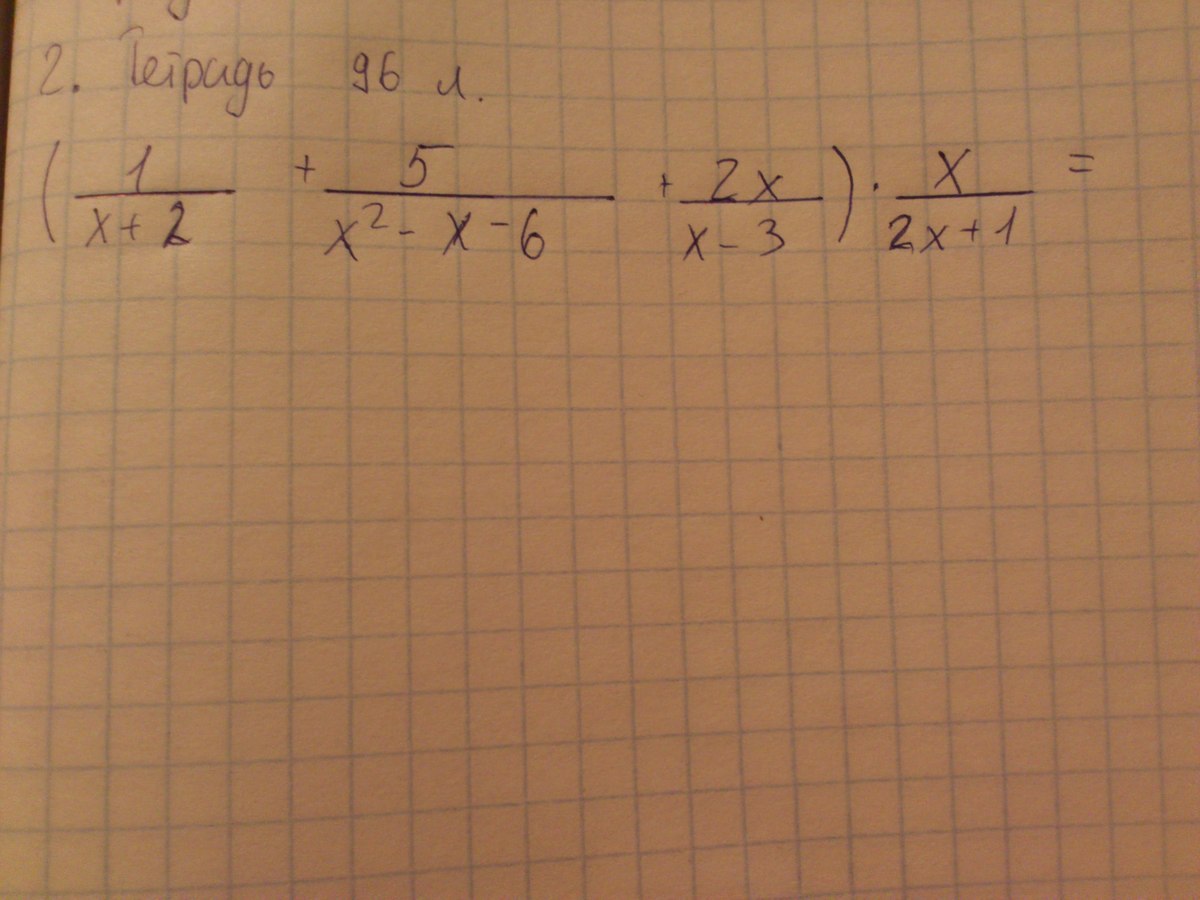 2. Тетрадь 96 л.
(1/(x+2) + 5/(x²-x-6) + 2x/(x-3)) · x/(2x+1) =